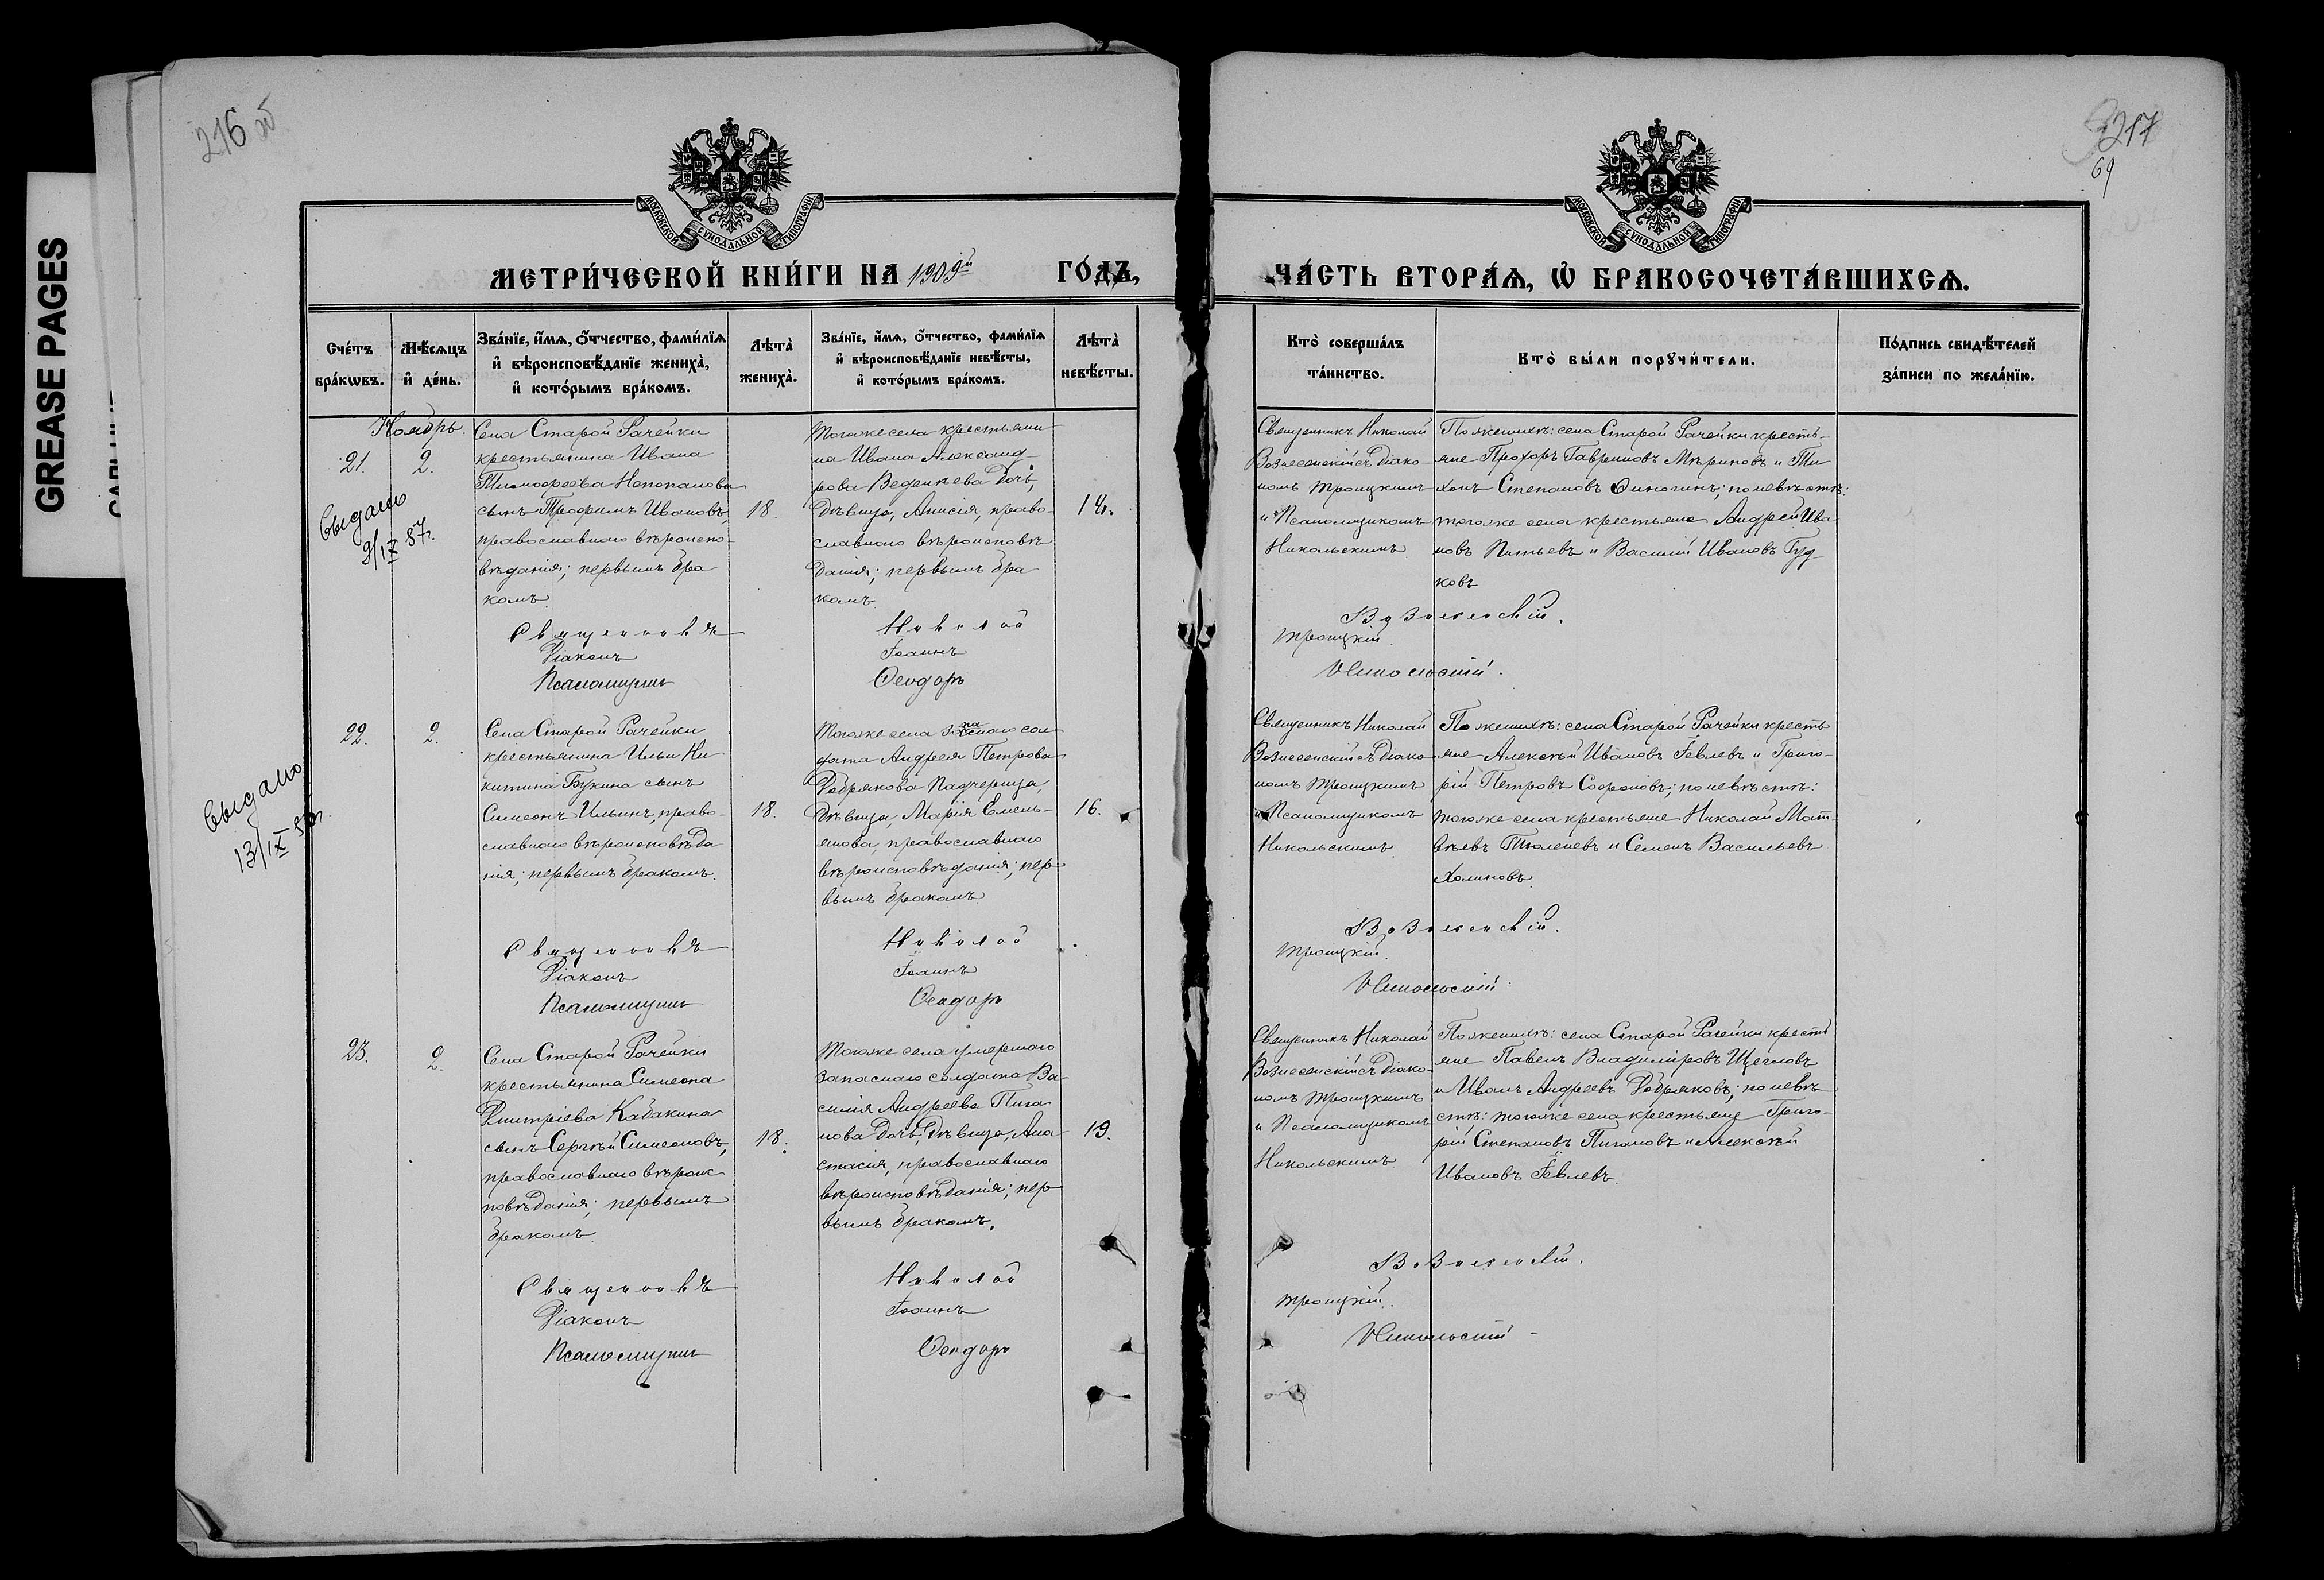 GREASE PAGES
216 об
217
69
МОСКОВСКОЙ СУНОДАЛЬНОЙ ТИПОГРАФІИ
МЕТРИ́ЧЕСКОЙ КНИ́ГИ НА 1909й ГО́ДЪ,
Сче́тъ бра́кѡвъ.
Мѣ́сѧцъ и҆ де́нь.
Зва́нїе, и҆́мѧ, ѻ҆́тчество, фами́лїѧ
и҆ вѣроисповѣ́данїе жениха̀,
и҆ кото́рымъ бра́комъ.
Лѣта̀ жениха̀.
Зва́нїе, и҆́мѧ, ѻ҆́тчество, фами́лїѧ
и҆ вѣроисповѣ́данїе невѣ́сты,
и҆ кото́рымъ бра́комъ.
Лѣта̀ невѣ́сты.
Ноябрь.
21.
2.
Выдано
9/IX 87г.
Села Старой Рачейки
крестьянина Ивана
Тимофеева Непопалова
сынъ Трофимъ Ивановъ,
православнаго вѣроиспо-
вѣданія; первымъ бра
комъ.
18.
Тогоже села крестьяни
на Ивана Александ
рова Веденѣева дочь,
дѣвица, Анисія, право-
славнаго вѣроисповѣ
данія; первымъ бра
комъ.
Священникъ Николай
Діаконъ Іоаннъ
Псаломщикъ Ѳеодоръ
22.
2.
Выдано
13/IX
Села Старой Рачейки
крестьянина Ильи Ни
китина Букина сынъ
Симеонъ Ильинъ, право-
славнаго вѣроисповѣда
нія; первымъ бракомъ.
18.
Тогоже села запаснаго сол
дата Андрея Петрова
Добрякова падчерица,
дѣвица, Марія Емель-
янова, православнаго
вѣроисповѣданія; пер
вымъ бракомъ.
16.
Священникъ Николай
Діаконъ Іоаннъ
Псаломщикъ Ѳеодоръ
23.
2.
Села Старой Рачейки
крестьянина Симеона
Димитріева Кабакина
сынъ Сергѣй Симеоновъ,
православнаго вѣроис
повѣданія; первымъ
бракомъ.
18.
Тогоже села умершаго
запаснаго солдата Ва
силія Андреева Пига
нова дочь, дѣвица, Ана
стасія, православнаго
вѣроисповѣданія; пер
вымъ бракомъ.
19.
Священникъ Николай
Діаконъ Іоаннъ
Псаломщикъ Ѳеодоръ
МОСКОВСКОЙ СУНОДАЛЬНОЙ ТИПОГРАФІИ
ЧА́СТЬ ВТОРА́Ѧ, Ѡ҆ БРАКОСОЧЕТА́ВШИХСѦ.
Кто̀ соверша́лъ
та́инство.
Кто̀ бы́ли порꙋчи́тели.
По́дпись свидѣ́телей
за́писи по жела́нїю.
Священникъ Николай
Вознесенскій съ діако-
номъ Троицкимъ
и Псаломщикомъ
Никольскимъ.
По женихѣ: села Старой Рачейки кресть-
яне Прохоръ Гавриловъ Мѣриновъ и Ти
хонъ Степановъ; по невѣстѣ:
тогоже села крестьяне Андрей Ива
новъ и Василій Ивановъ Гуд
ковъ
Вознесенскій.
Троицкій.
Никольскій.
Священникъ Николай
Вознесенскій съ діако
номъ Троицкимъ
и Псаломщикомъ
Никольскимъ.
По женихѣ: села Старой Рачейки кресть
яне Алексѣй Ивановъ Іевлевъ и Григо-
рій Петровъ Софроновъ; по невѣстѣ:
тогоже села крестьяне Николай Мат-
вѣевъ Тюленевъ и Семенъ Васильевъ
Холиновъ.
Вознесенскій.
Троицкій.
Никольскій.
Священникъ Николай
Вознесенскій съ діако
номъ Троицкимъ
и Псаломщикомъ
Никольскимъ.
По женихѣ: села Старой Рачейки кресть
яне Павелъ Владиміровъ Щегловъ
и Иванъ Андреевъ Добряковъ; по невѣ
стѣ: тогоже села крестьяне Григо-
рій Степановъ Пигановъ и Алексѣй
Ивановъ Іевлевъ.
Вознесенскій.
Троицкій.
Никольскій